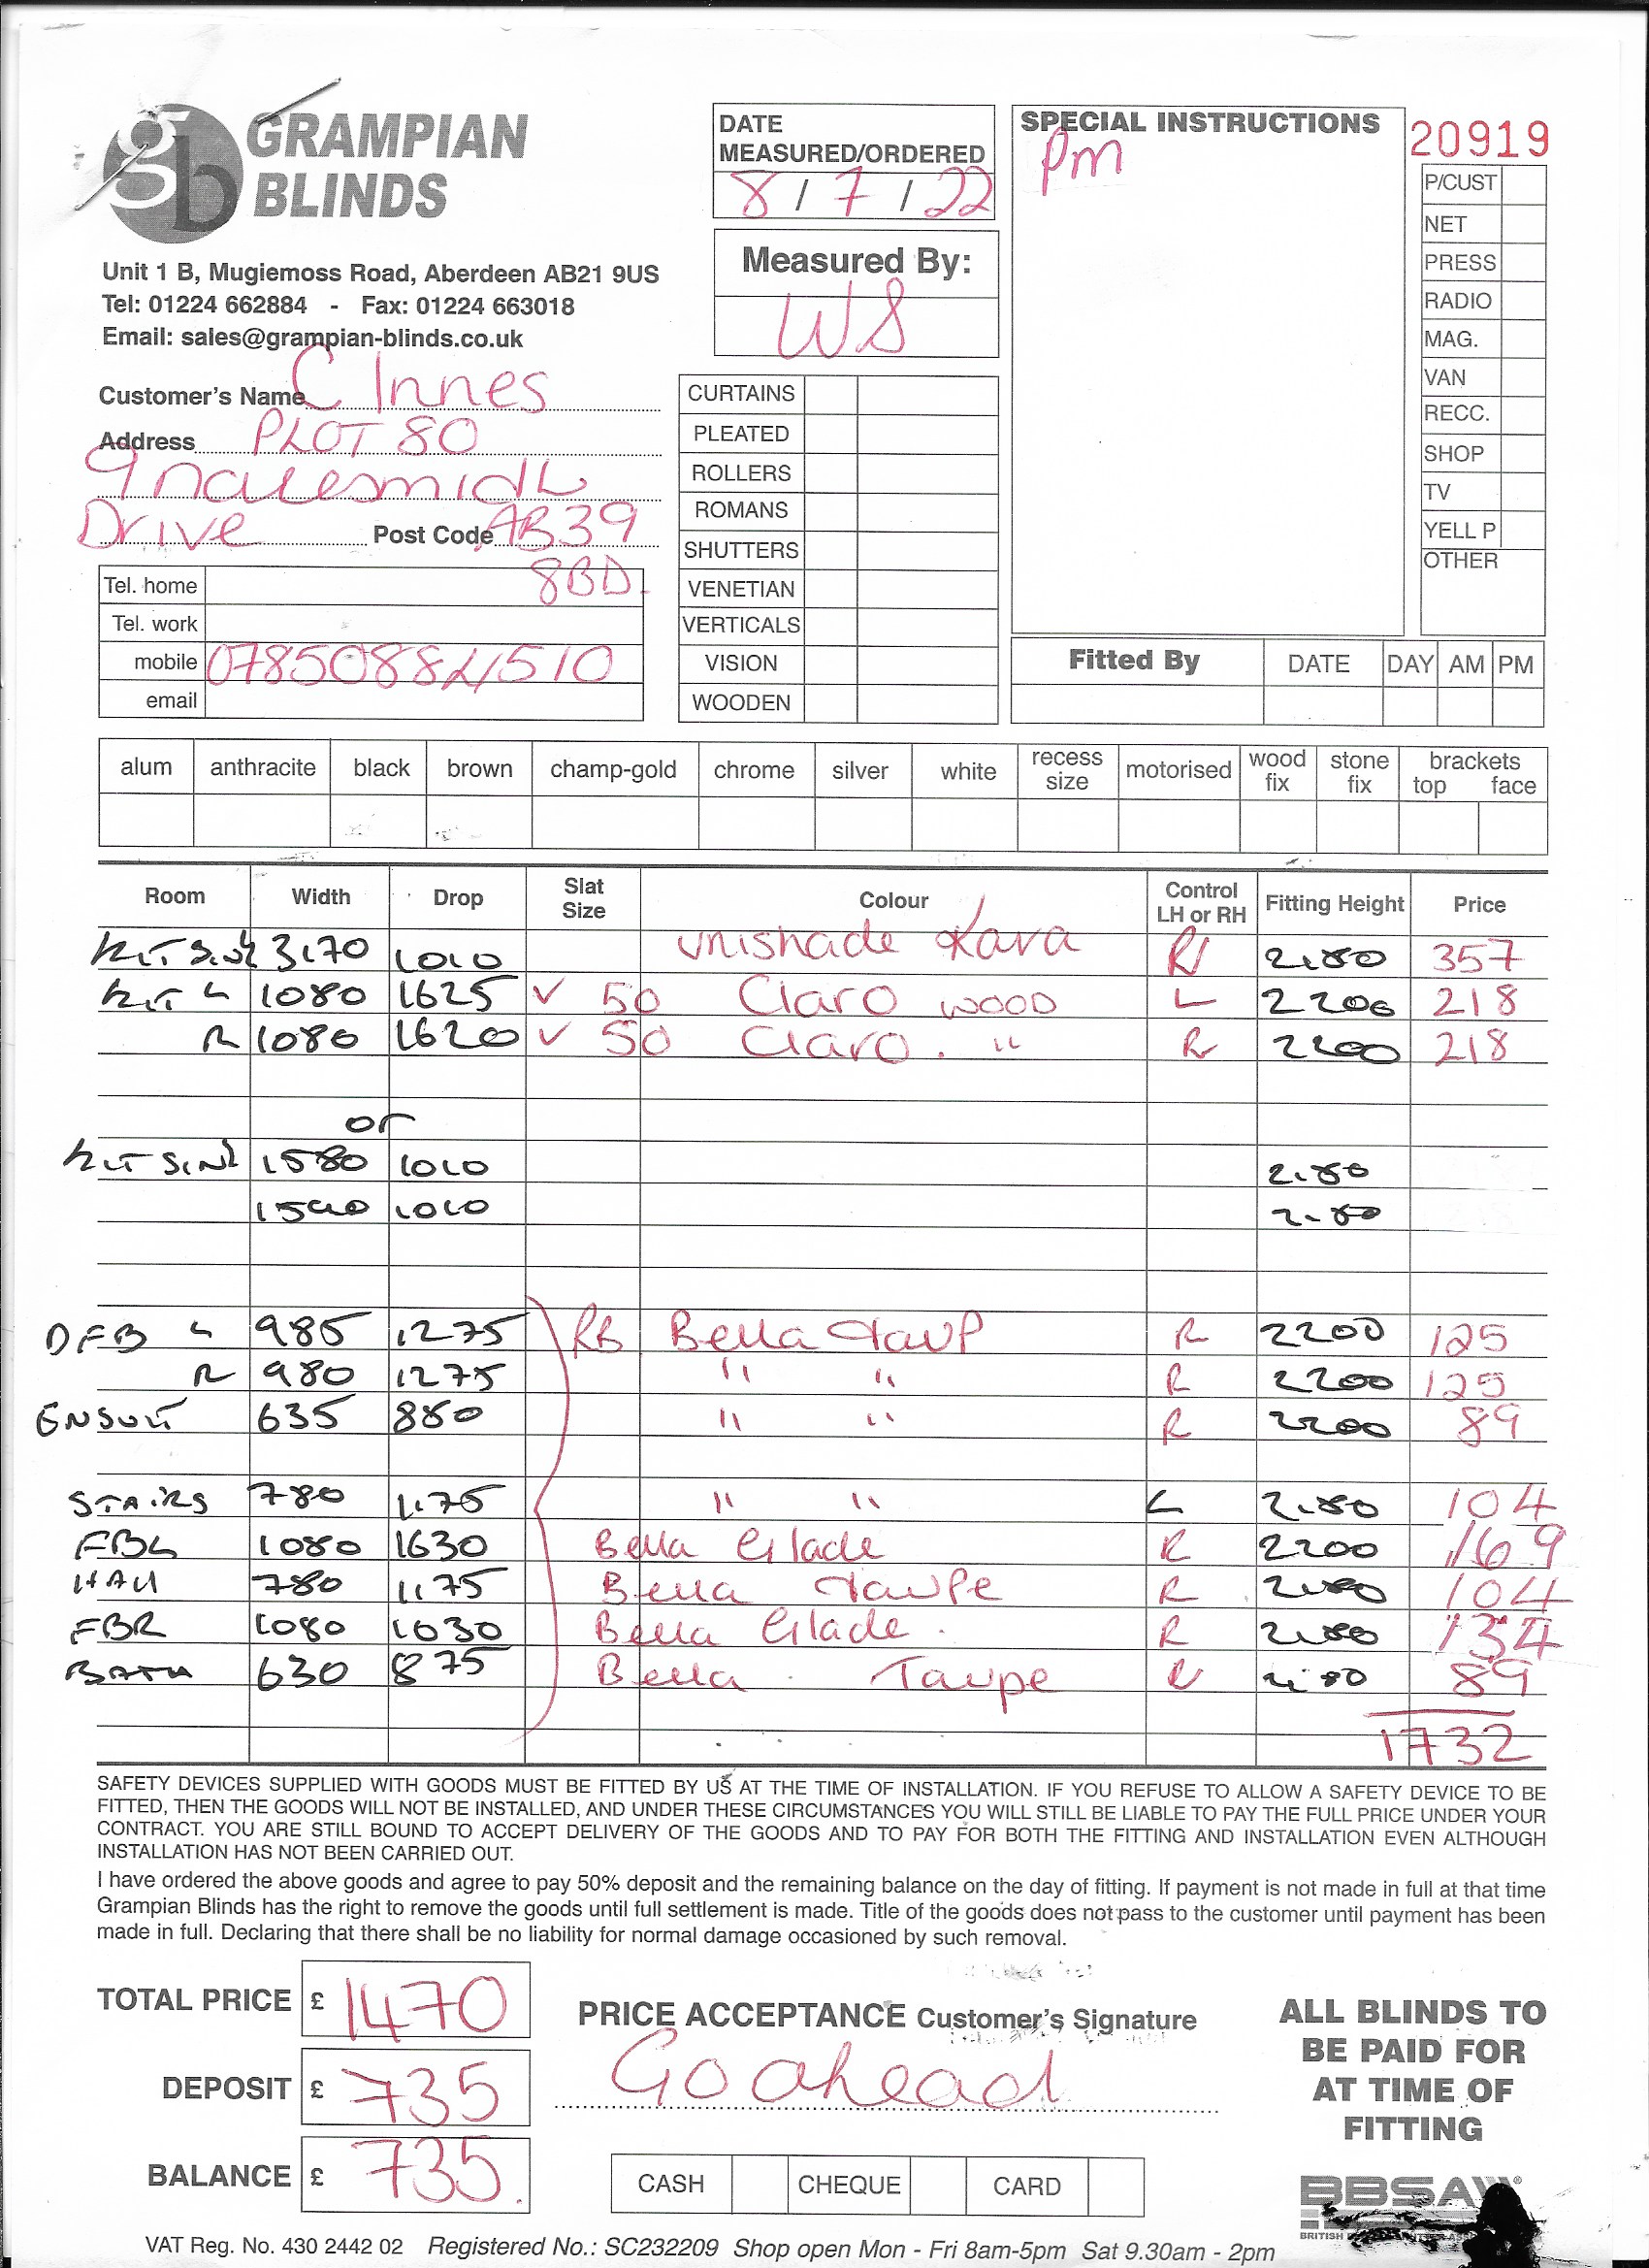 GRAMPIAN
BLINDS
Unit 1 B, Mugiemoss Road, Aberdeen AB21 9US
Tel: 01224 662884 - Fax: 01224 663018
Email: sales@grampian-blinds.co.uk
DATE
MEASURED/ORDERED
8 / 7 / 22
Measured By:
WS
SPECIAL INSTRUCTIONS
Pm
20919
P/CUST
NET
PRESS
RADIO
MAG.
VAN
RECC.
SHOP
TV
YELL P
OTHER
Customer's Name C Innes
Address PLOT 80
Drive Post Code AB39
8BD.
Tel. home
Tel. work
mobile 07850884510
email
CURTAINS
PLEATED
ROLLERS
ROMANS
SHUTTERS
VENETIAN
VERTICALS
VISION
WOODEN
Fitted By DATE DAY AM PM
alum anthracite black brown champ-gold chrome silver white recess size motorised wood fix stone fix brackets top face
Room Width Drop Slat Size Colour Control LH or RH Fitting Height Price
KIT SINK 3170 1010 Unishade Kava R 2180 357
KIT L 1080 1625 ✓ 50 Claro WOOD L 2200 218
R 1080 1620 ✓ 50 Claro . " R 2200 218
or
KIT SINK 1580 1010 2180
1010 2180
DFB L 985 1275 RB Bella Taup R 2200 125
R 980 1275 " " R 2200 125
ENSUIT 635 880 " " R 2200 89
STAIRS 780 1175 " " L 2180 104
FBL 1080 1630 Bella Glade R 2200 169
HALL 780 1175 Bella Taupe R 2180 104
FBR 1080 1030 Bella Glade . R 2180 134
BATH 630 875 Bella . Taupe R 2180 89
1732
SAFETY DEVICES SUPPLIED WITH GOODS MUST BE FITTED BY US AT THE TIME OF INSTALLATION. IF YOU REFUSE TO ALLOW A SAFETY DEVICE TO BE
FITTED, THEN THE GOODS WILL NOT BE INSTALLED, AND UNDER THESE CIRCUMSTANCES YOU WILL STILL BE LIABLE TO PAY THE FULL PRICE UNDER YOUR
CONTRACT. YOU ARE STILL BOUND TO ACCEPT DELIVERY OF THE GOODS AND TO PAY FOR BOTH THE FITTING AND INSTALLATION EVEN ALTHOUGH
INSTALLATION HAS NOT BEEN CARRIED OUT.
I have ordered the above goods and agree to pay 50% deposit and the remaining balance on the day of fitting. If payment is not made in full at that time
Grampian Blinds has the right to remove the goods until full settlement is made. Title of the goods does not pass to the customer until payment has been
made in full. Declaring that there shall be no liability for normal damage occasioned by such removal.
TOTAL PRICE £ 1470
DEPOSIT £ 735
BALANCE £ 735.
PRICE ACCEPTANCE Customer's Signature
Go ahead
CASH CHEQUE CARD
ALL BLINDS TO
BE PAID FOR
AT TIME OF
FITTING
BBSA
BRITISH
VAT Reg. No. 430 2442 02 Registered No.: SC232209 Shop open Mon - Fri 8am-5pm Sat 9.30am - 2pm